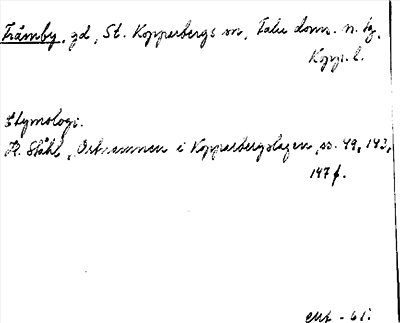 Främby, gd, St. Kopparbergs sn, Falu doms. n. tg,
Kopp. l.
Etymologi.
H. Ståhl, Ortnamnen i Kopparbergslagen, ss. 49, 143,
147 f.
- 61.